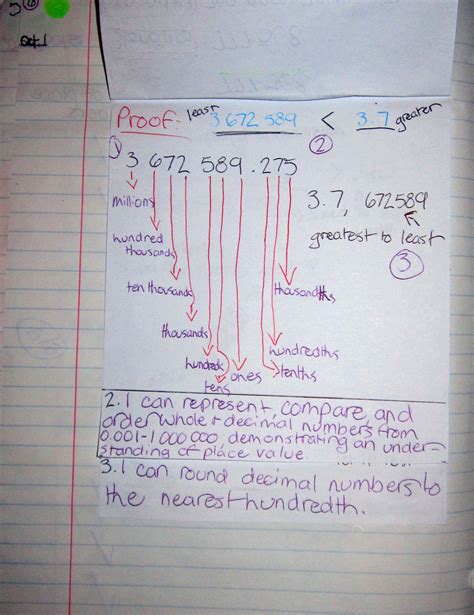 Oct 1
Proof: least 3 672 589 < 3.7 greater
1
2
3 672 589.275
3.7, 672589
greatest to least
3
millions
hundred
thousands
ten thousands
thousandths
thousands
hundredths
hundreds
tenths
ones
tens
2. I can represent, compare, and
order whole + decimal numbers from
0.001-1000 000, demonstrating an under-
standing of place value.
3. I can round decimal numbers to
the nearest hundredth.